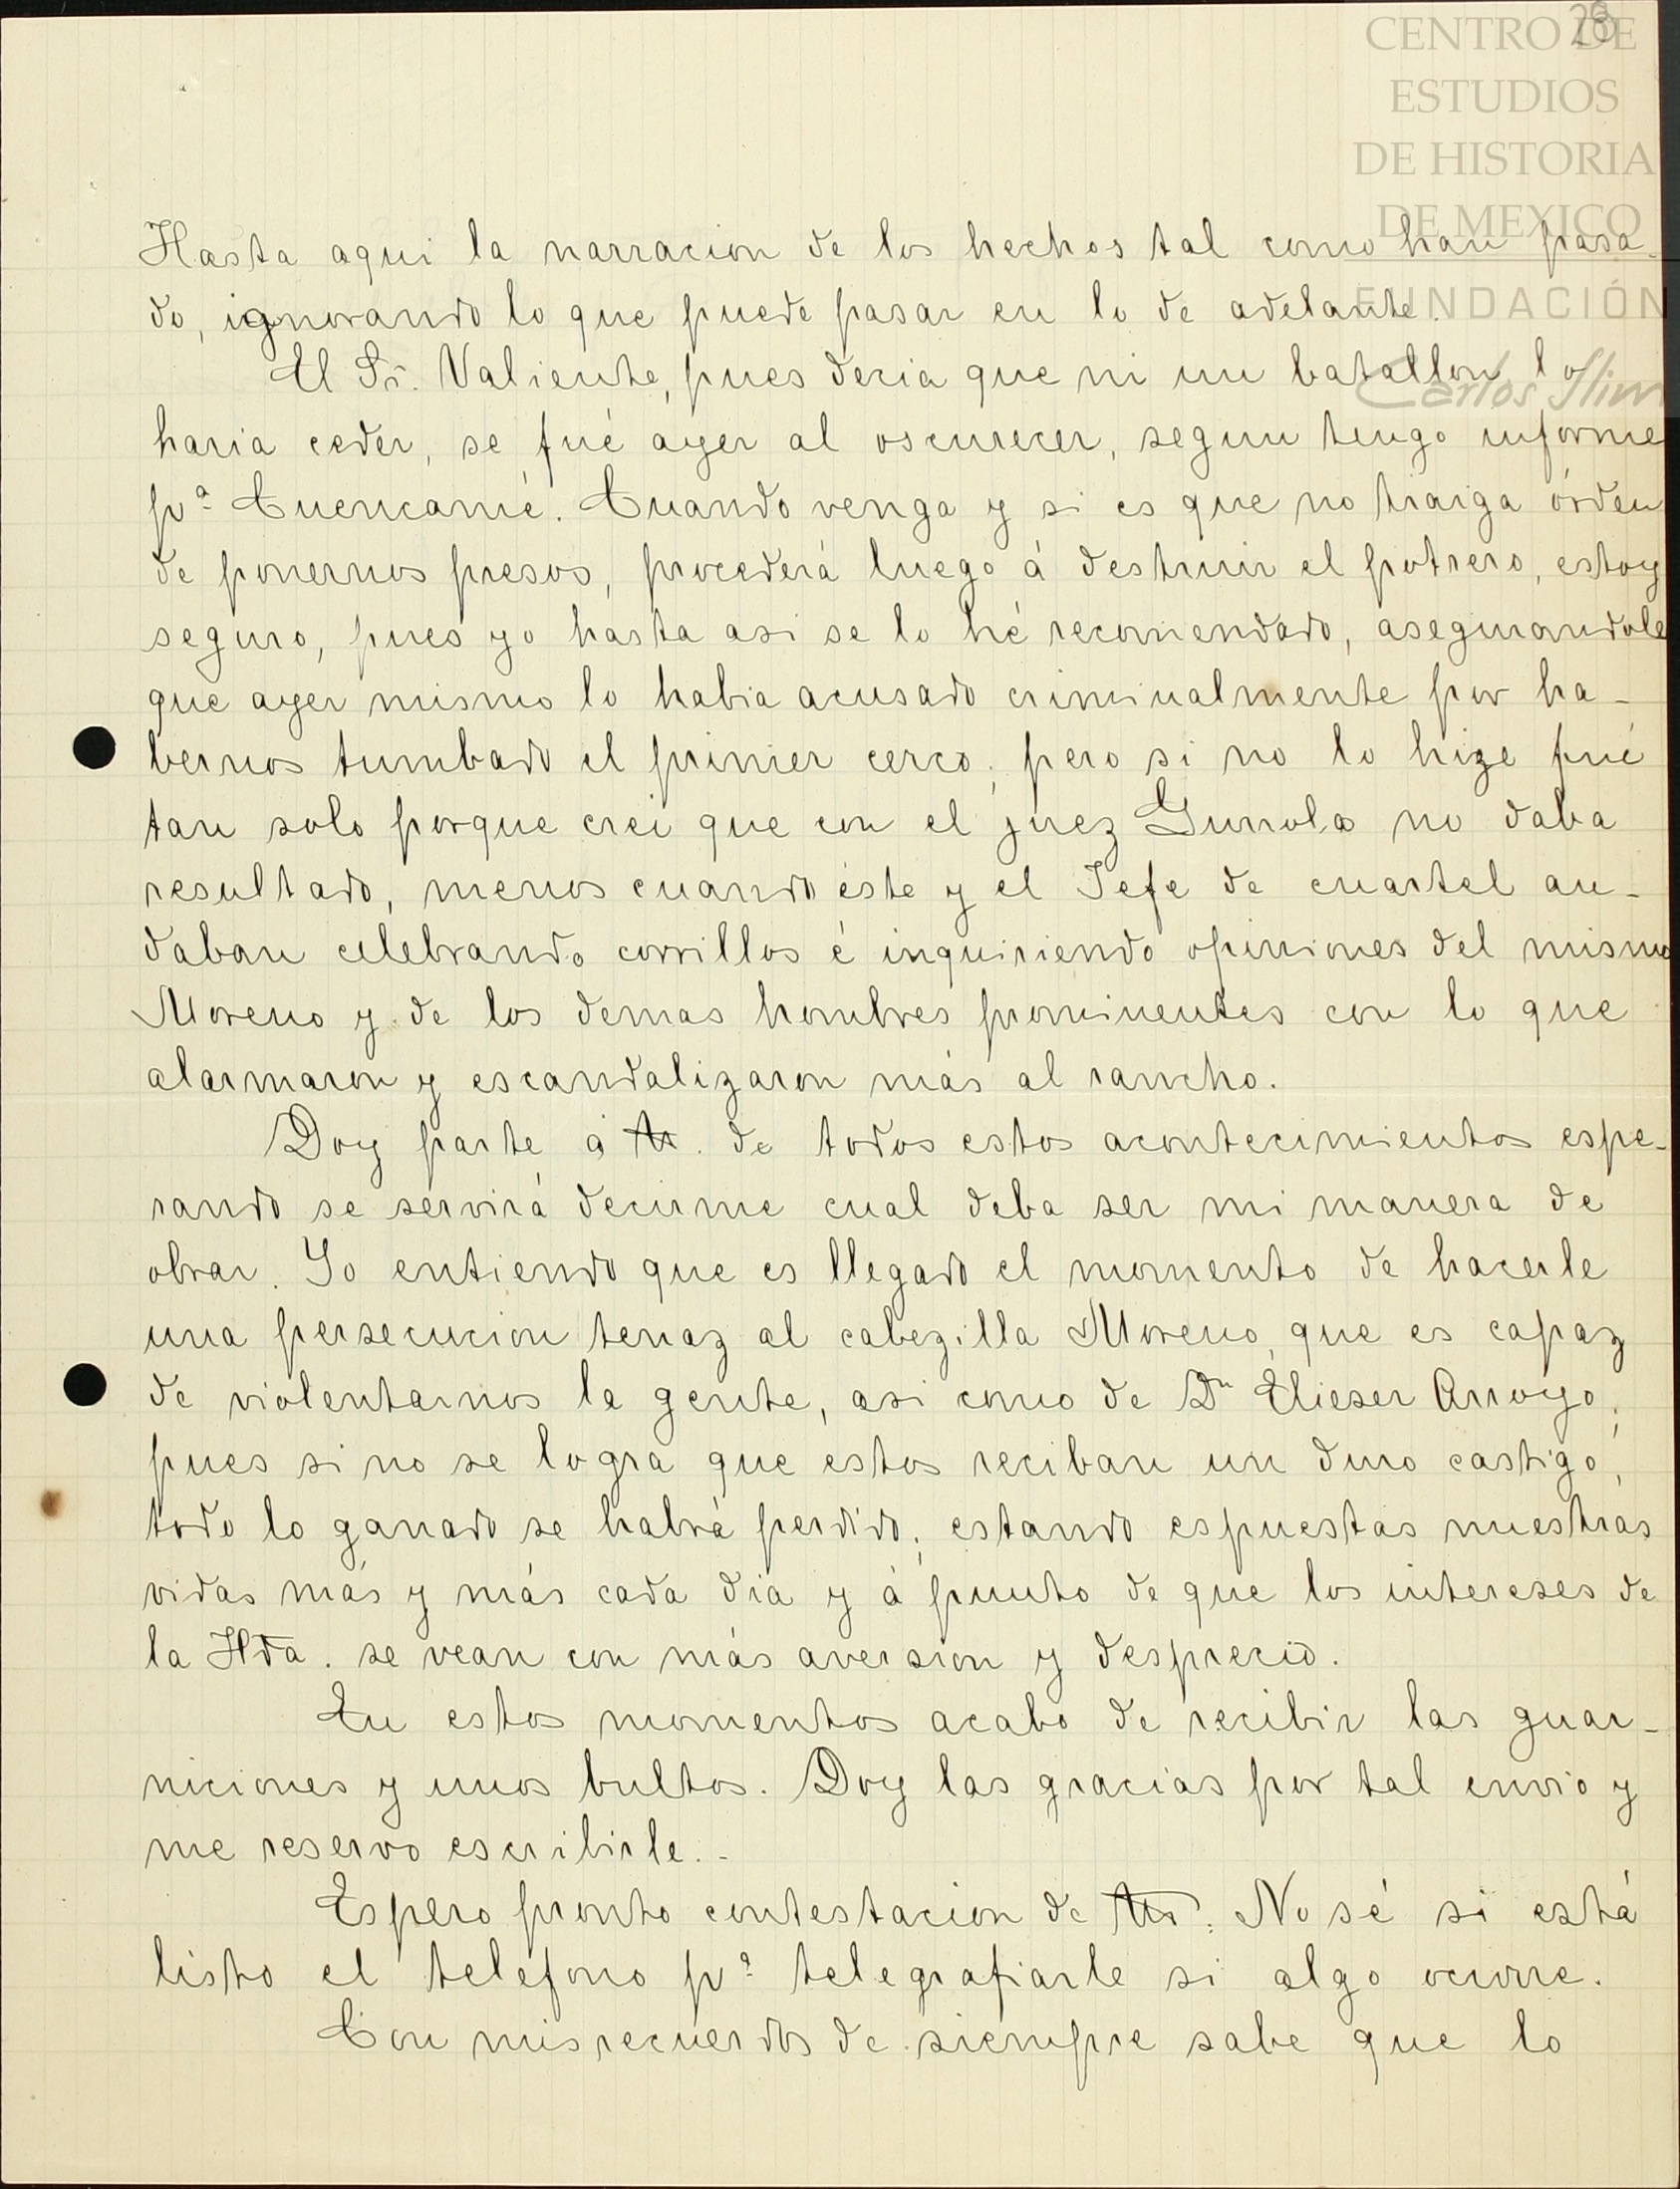 28
CENTRO DE
ESTUDIOS
DE HISTORIA
DE MEXICO
FUNDACIÓN
Carlos Slim
Hasta aqui la narracion de los hechos tal como han pasa-
do, ignorando lo que puede pasar en lo de adelante.
El Sr. Valiente, pues decia que ni un batallon lo
haria ceder, se fué ayer al oscurecer, segun tengo informe
pª Cuencamé. Cuando venga y si es que no traiga órden
de ponernos presos, procederá luego á destruir el potrero, estoy
seguro, pues yo hasta asi se lo hé recomendado, asegurandole
que ayer mismo lo habia acusado criminalmente por ha-
bernos tumbado el primer cerco; pero si no lo hize fué
tan solo porque crei que con el juez Gurrola no daba
resultado, menos cuando éste y el Jefe de cuartel an-
daban celebrando corrillos é inquiriendo opiniones del mismo
Moreno y de los demas hombres prominentes con lo que
alarmaron y escandalizaron más al rancho.
Doy parte á U. de todos estos acontecimientos espe-
rando se servirá decirme cual deba ser mi manera de
obrar. Yo entiendo que es llegado el momento de hacerle
una persecucion tenaz al cabezilla Moreno, que es capaz
de violentarnos la gente, asi como de Dn Elieser Arroyo;
pues si no se logra que estos reciban un duro castigo,
todo lo ganado se habrá perdido; estando espuestas nuestras
vidas más y más cada dia y á punto de que los intereses de
la Hda. se vean con más aversion y desprecio.
En estos momentos acabo de recibir las guar-
niciones y unos bultos. Doy las gracias por tal envio y
me reservo escribirle.-
Espero pronto contestacion de U. No sé si está
listo el teléfono pª telegrafiarle si algo ocurre.
Con mis recuerdos de siempre sabe que lo